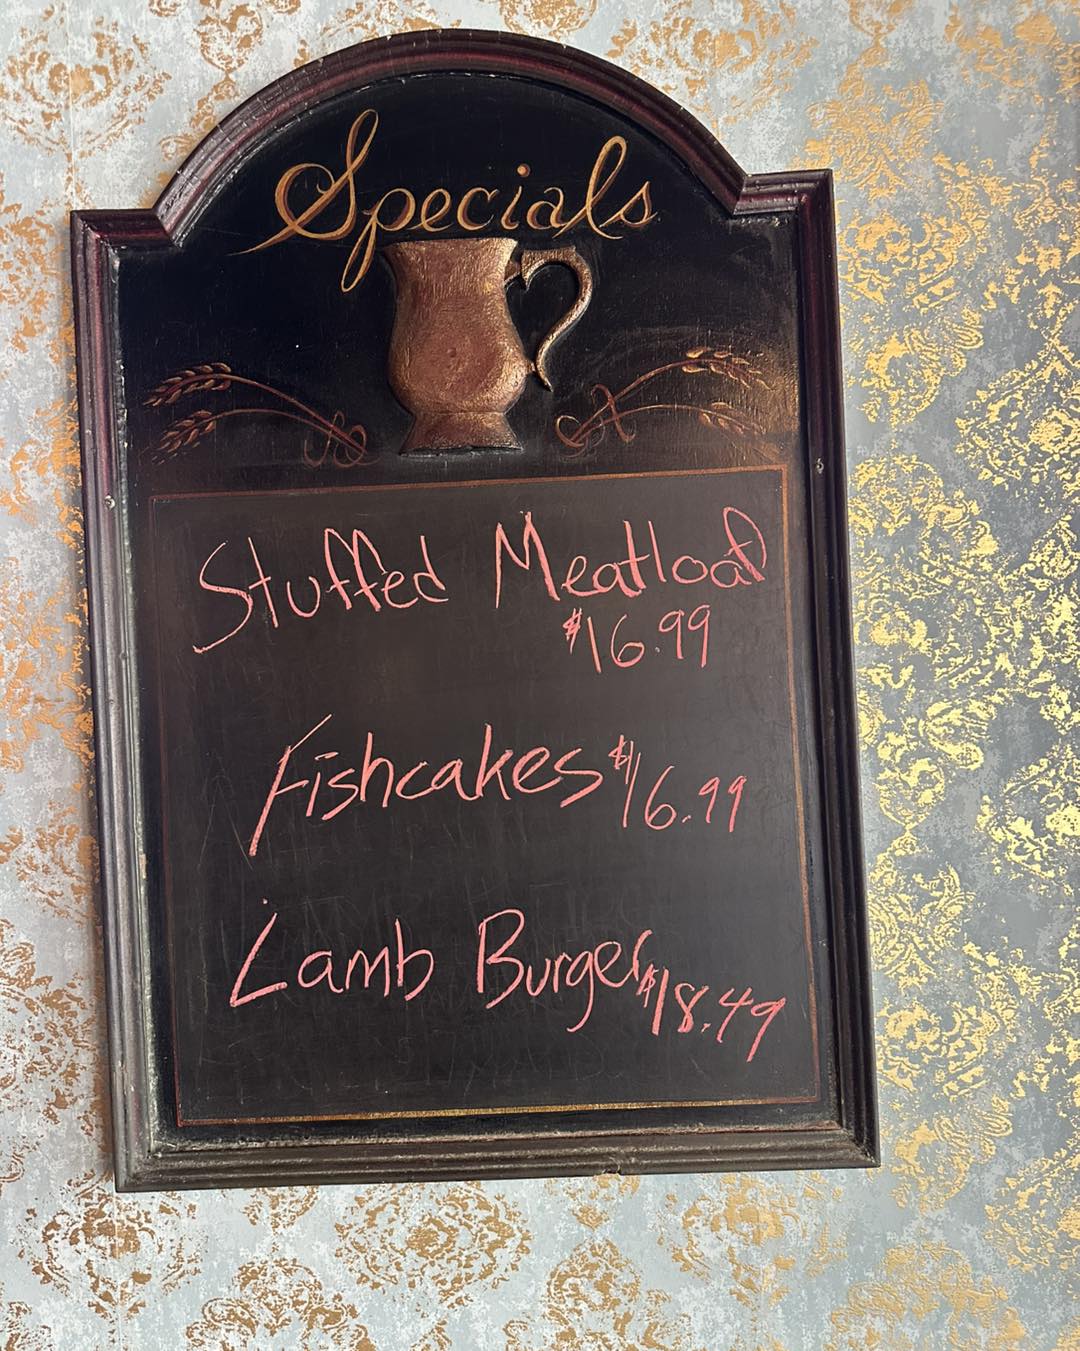 Specials
Stuffed Meatloaf
$16.99
Fishcakes $16.99
Lamb Burger $18.49